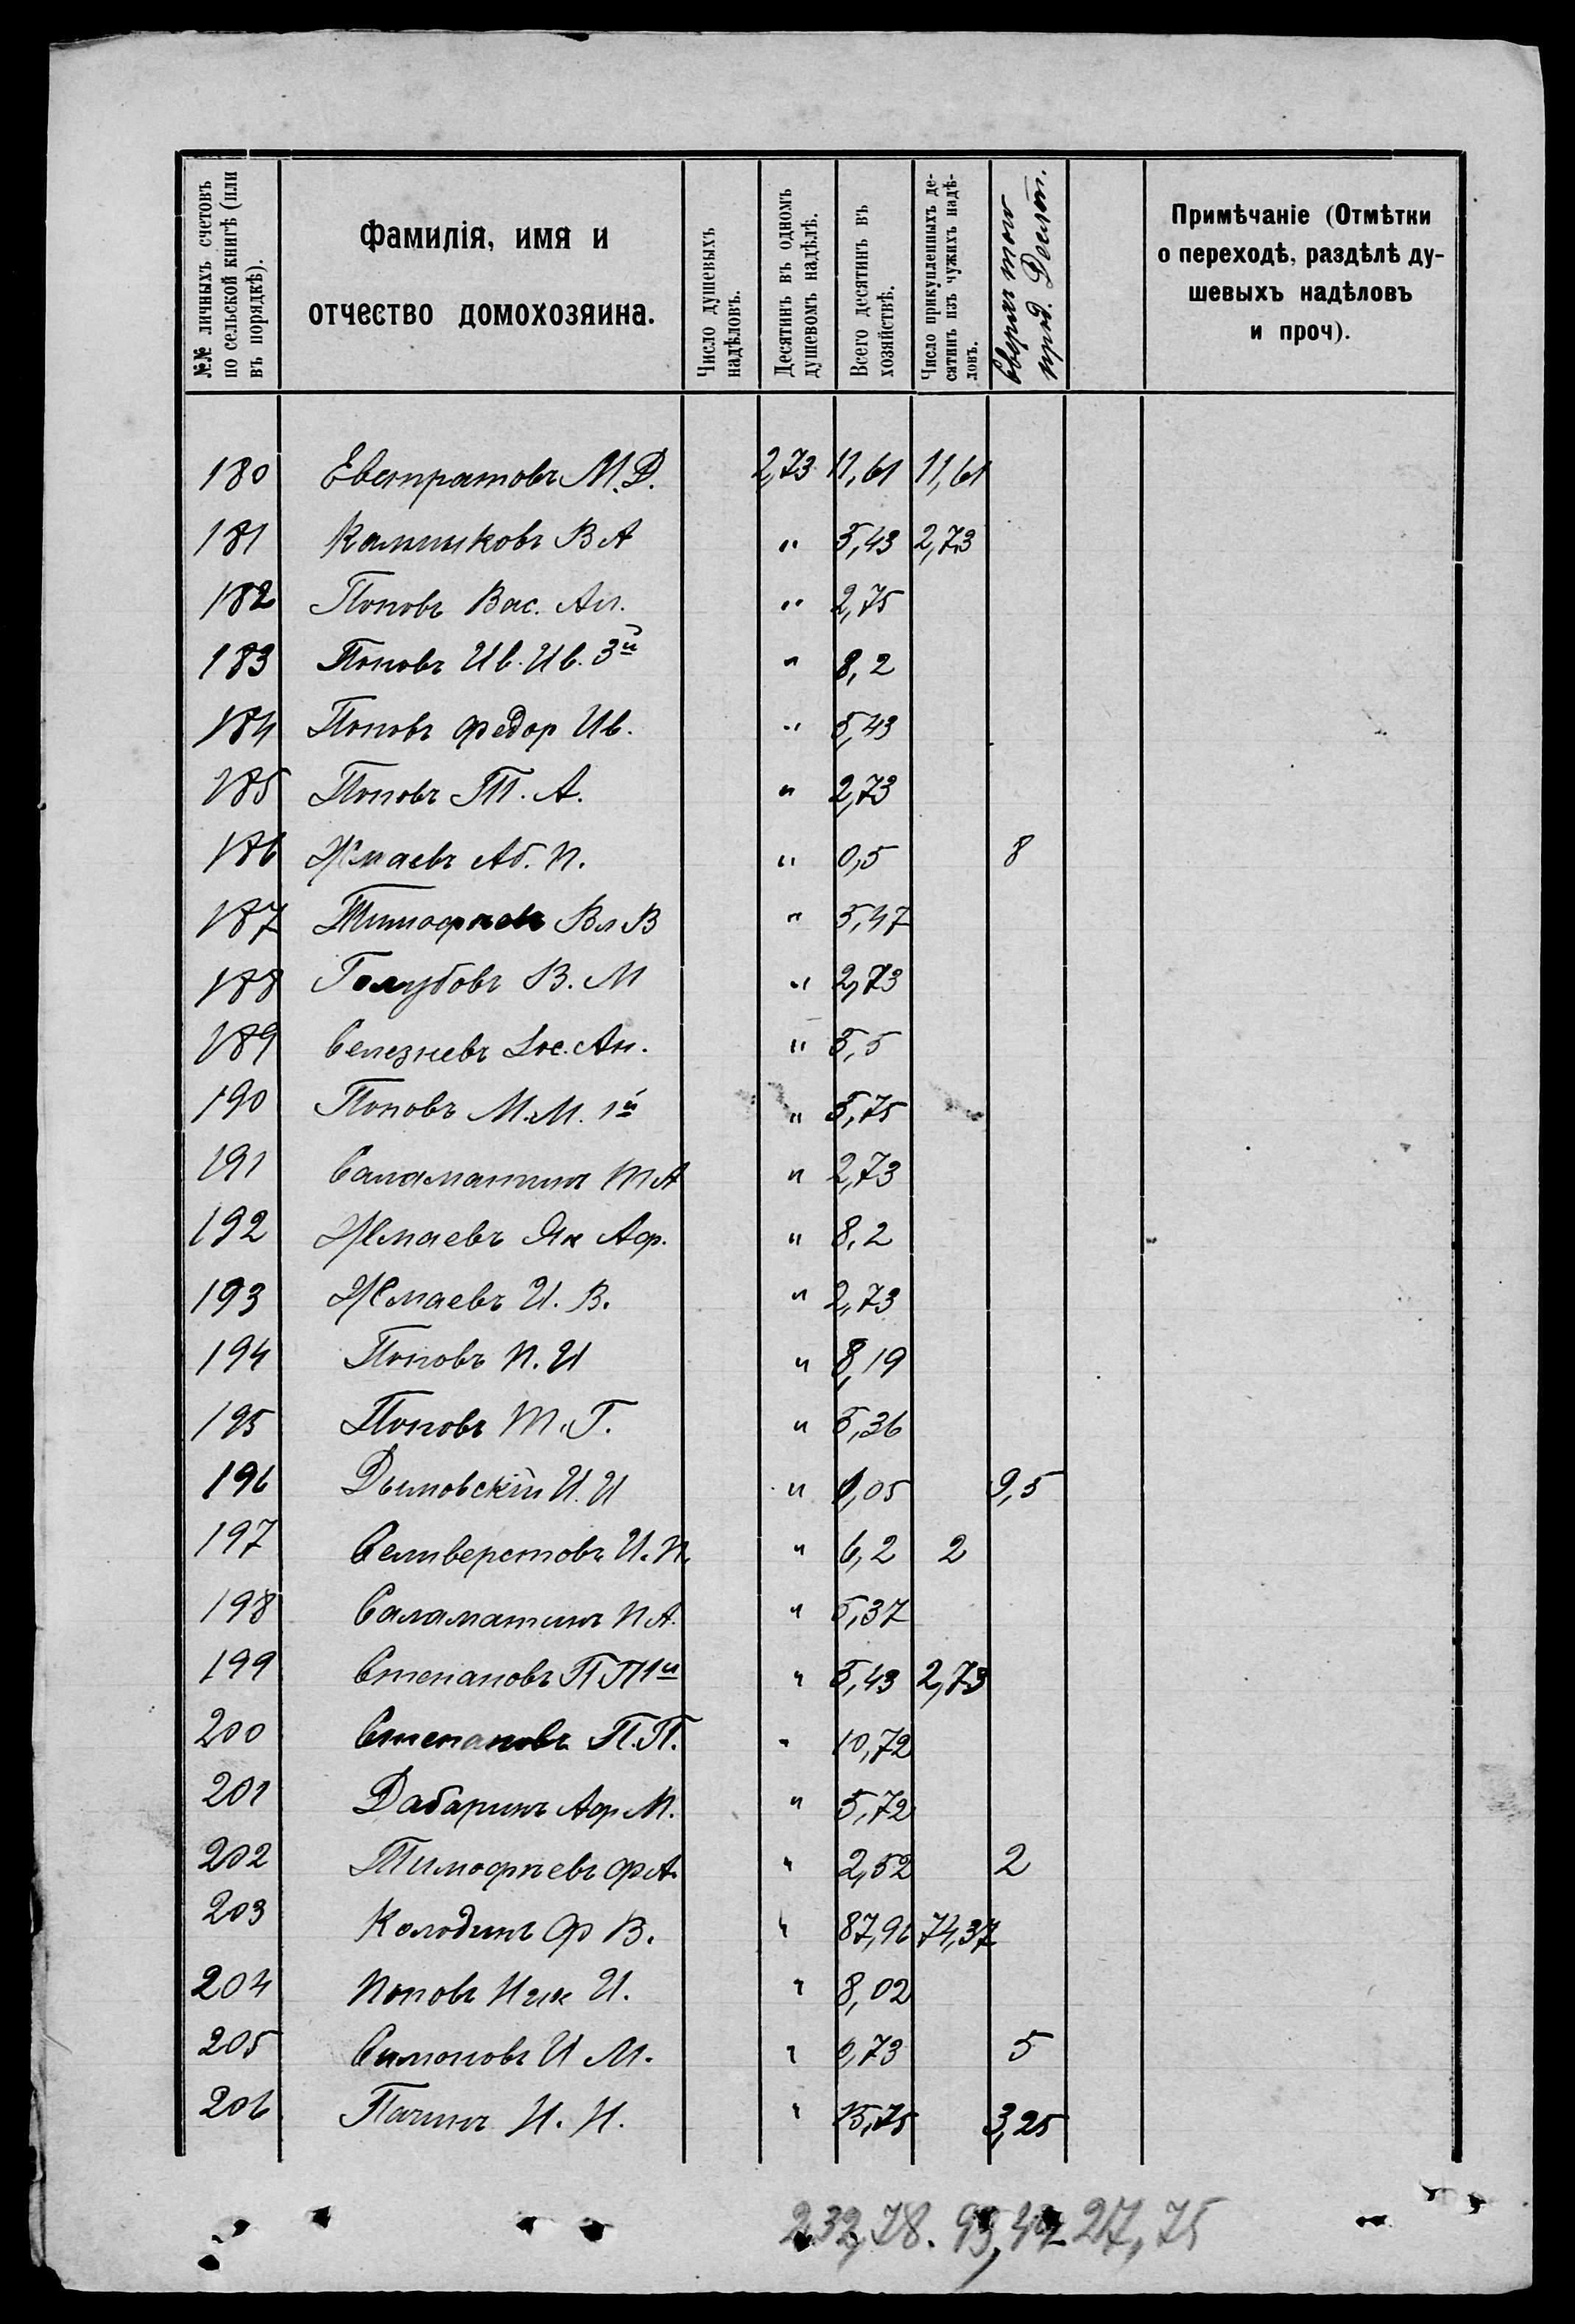 №№ личныхъ счетовъ по сельской книгѣ (или въ порядкѣ).
Фамилія, имя и отчество домохозяина.
Число душевыхъ надѣловъ.
Десятинъ въ одномъ душевомъ надѣлѣ.
Всего десятинъ въ хозяйствѣ.
Число прикупленныхъ десятинъ изъ чужихъ надѣловъ.
Сверхъ того прод. Десят.
Примѣчаніе (Отмѣтки о переходѣ, раздѣлѣ душевыхъ надѣловъ и проч).
180 Евстратовъ М. Д. 2,73 11,61 11,61
181 Калмыковъ В А " 5,43 2,73
182 Поповъ Вас. Ал. " 2,75
183 Поповъ Ив. Ив. 3й " 8,2
184 Поповъ Федор Ив. " 5,43
185 Поповъ Т. А. " 2,73
186 Жмаевъ Аб. П. " 0,5 8
187 Тимофеевъ Вл В " 5,47
188 Голубовъ В. М " 2,73
189 Селезневъ Ан. " 5,5
190 Поповъ М. М. 1й " 5,75
191 Саламатинъ М А " 2,73
192 Жмаевъ Як Аф. " 8,2
193 Жмаевъ И. В. " 2,73
194 Поповъ П. И " 8,19
195 Поповъ М. Г. " 5,36
196 Дымовскій И. И " ,05 9,5
197 Селиверстовъ И. П. " 6,2 2
198 Саламатинъ П А. " 5,37
199 Степановъ П П 1й " 5,43 2,73
200 Степановъ П. П. " 10,72
201 Дабаринъ Аф М. " 5,72
202 Тимофѣевъ Ф А. " 2,52 2
203 Колодинъ Ф В. " 87,96 74,37
204 Поповъ Ник И. " 8,02
205 Симоновъ И М. " ,73 5
206 Пачинъ И. И. " 15,75 3,25
232,78. 93,44 27,75